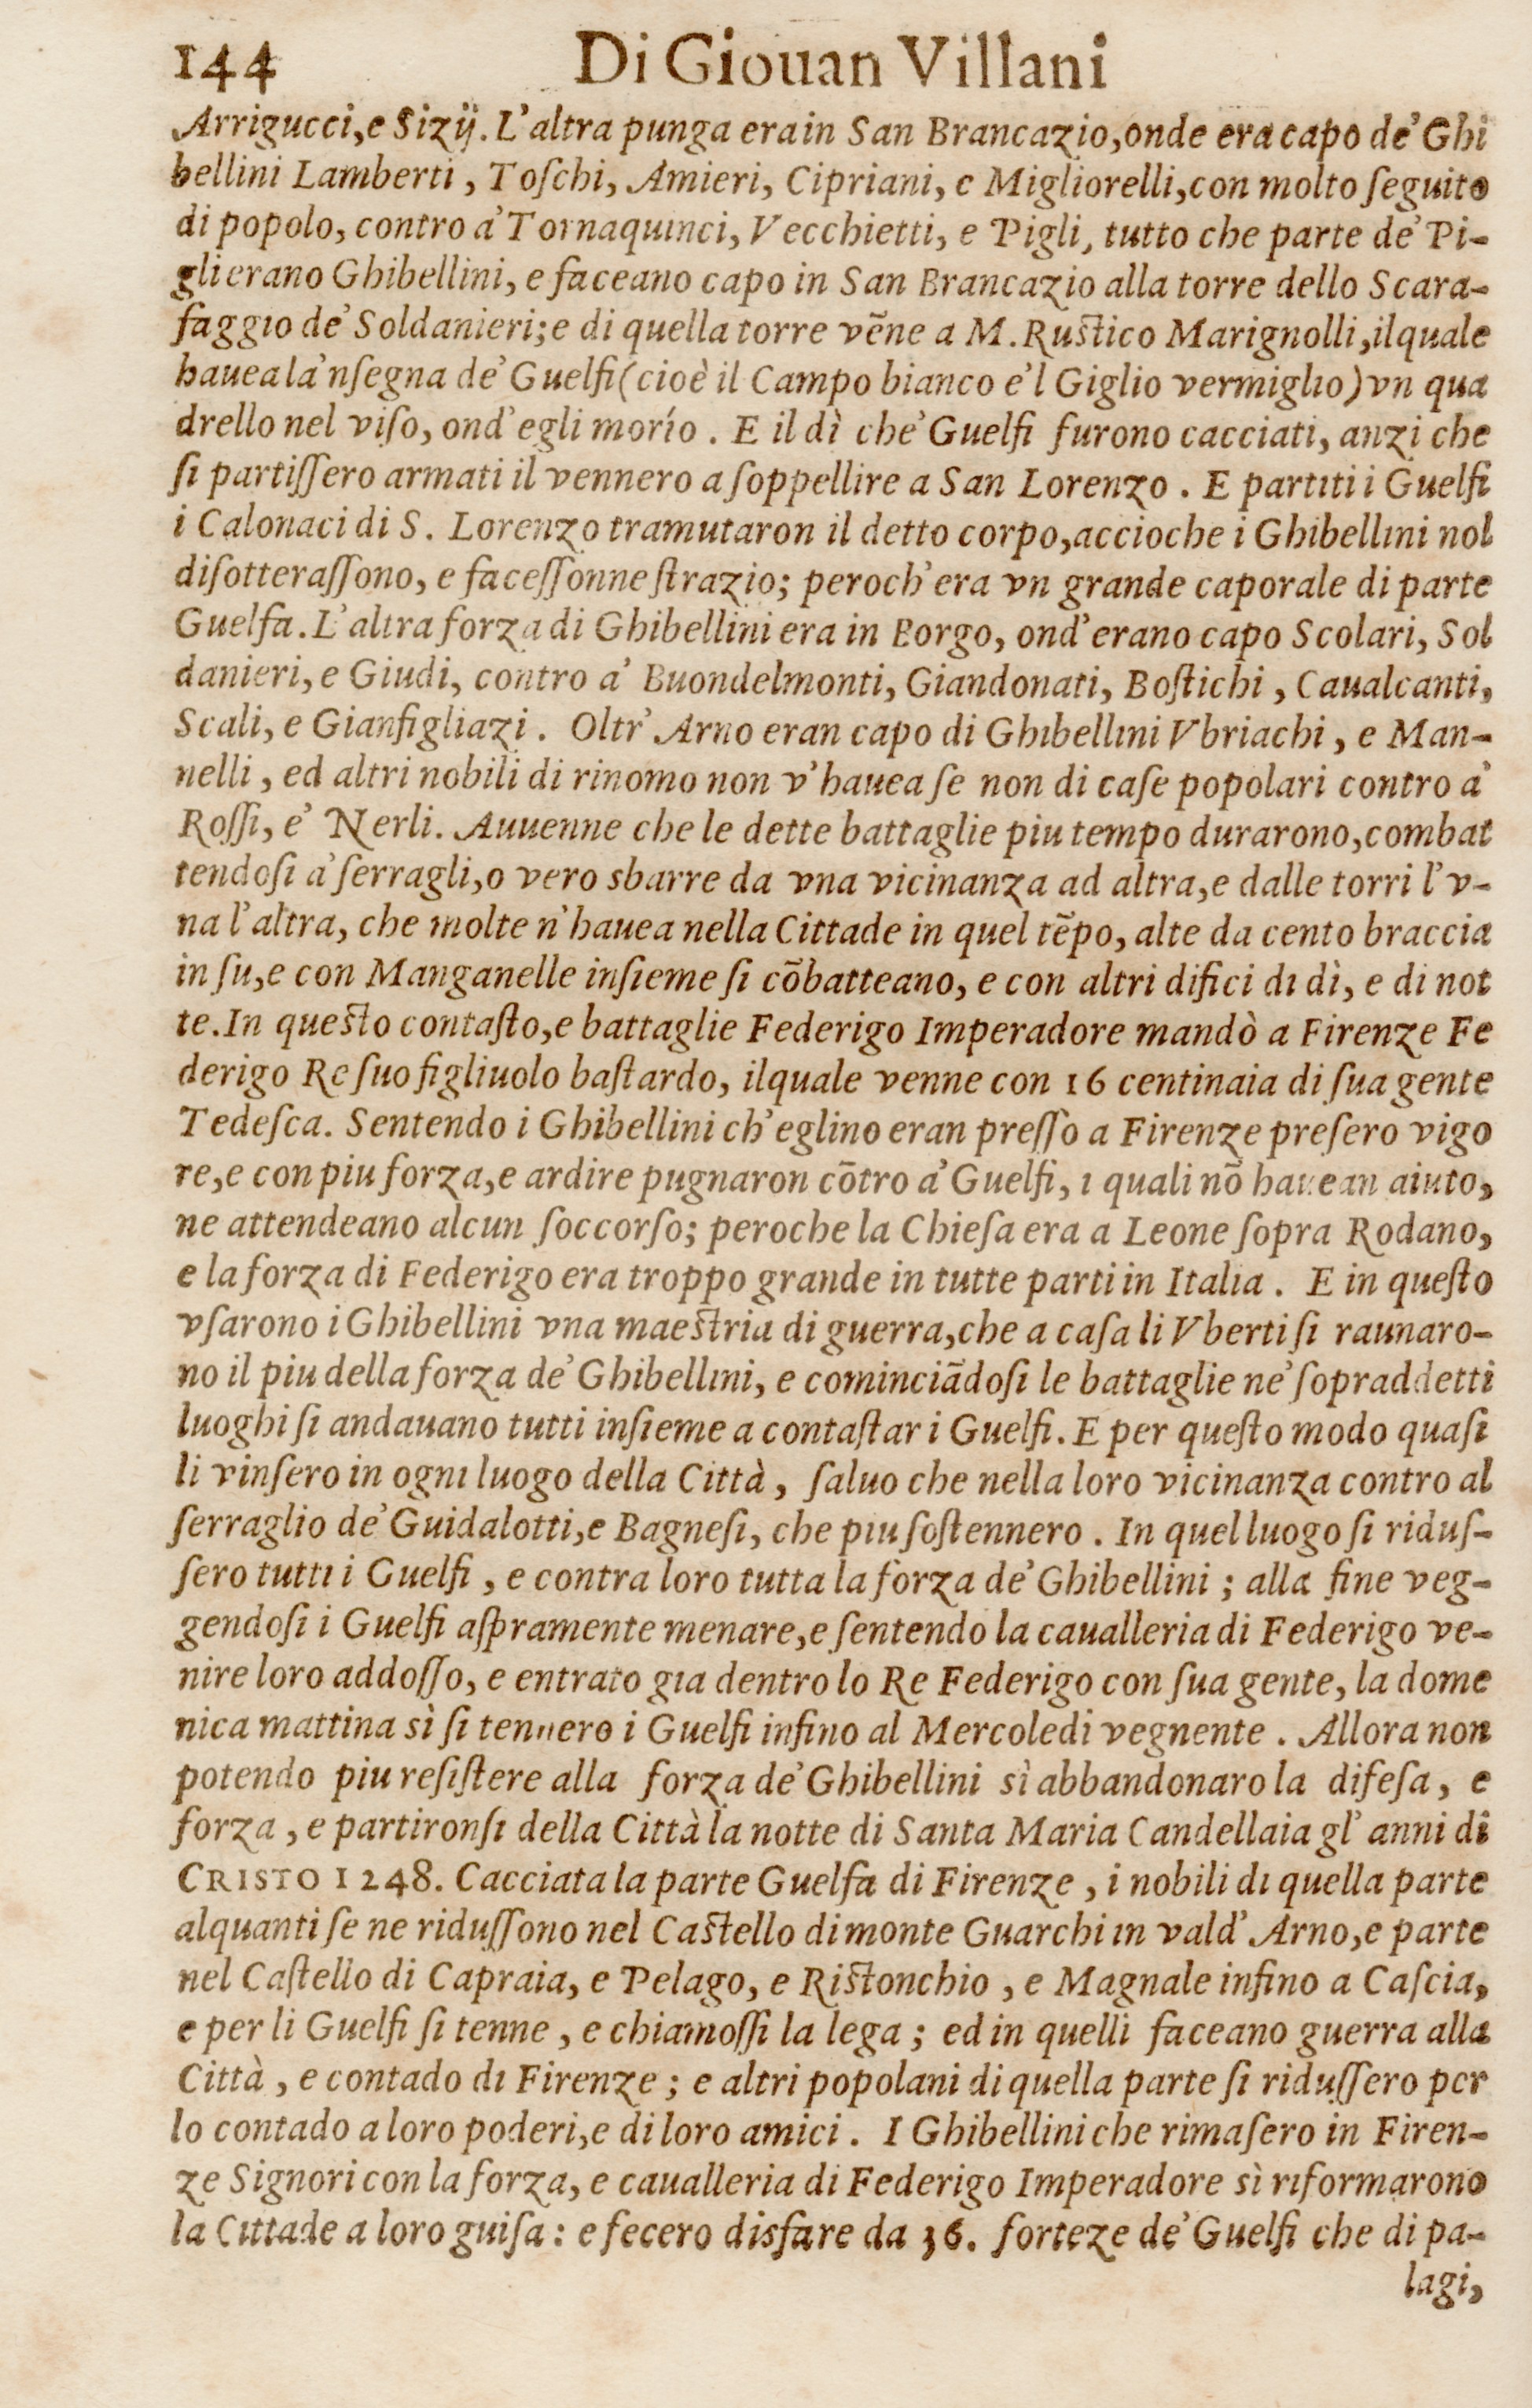 144 Di Giouan Villani
Arrigucci, e Sizij. L'altra punga era in San Brancazio, onde era capo de' Ghi
bellini Lamberti, Toſchi, Amieri, Cipriani, e Migliorelli, con molto ſeguito
di popolo, contro a' Tornaquinci, Vecchietti, e Pigli, tutto che parte de' Pi-
gli erano Ghibellini, e faceano capo in San Brancazio alla torre dello Scara-
faggio de' Soldanieri; e di quella torre vẽne a M. Ruſtico Marignolli, ilquale
hauea la'nſegna de' Guelfi (cioè il Campo bianco e'l Giglio vermiglio) vn qua
drello nel viſo, ond'egli morío. E il dì che' Guelfi furono cacciati, anzi che
ſi partiſſero armati il vennero a ſoppellire a San Lorenzo. E partiti i Guelfi
i Calonaci di S. Lorenzo tramutaron il detto corpo, accioche i Ghibellini nol
diſotteraſſono, e faceſſonne ſtrazio; peroch'era vn grande caporale di parte
Guelfa. L'altra forza di Ghibellini era in Borgo, ond'erano capo Scolari, Sol
danieri, e Giudi, contro a' Buondelmonti, Giandonati, Boſtichi, Caualcanti,
Scali, e Gianfigliazi. Oltr' Arno eran capo di Ghibellini Vbriachi, e Man-
nelli, ed altri nobili di rinomo non v'hauea ſe non di caſe popolari contro a'
Roſſi, e' Nerli. Auuenne che le dette battaglie piu tempo durarono, combat
tendoſi a' ſerragli, o vero sbarre da vna vicinanza ad altra, e dalle torri l'v-
na l'altra, che molte n'hauea nella Cittade in quel tẽpo, alte da cento braccia
in ſu, e con Manganelle inſieme ſi cõbatteano, e con altri difici di dì, e di not
te. In queſto contaſto, e battaglie Federigo Imperadore mandò a Firenze Fe
derigo Re ſuo figliuolo baſtardo, ilquale venne con 16 centinaia di ſua gente
Tedeſca. Sentendo i Ghibellini ch'eglino eran preſſò a Firenze preſero vigo
re, e con piu forza, e ardire pugnaron cõtro a' Guelfi, i quali nõ hauean aiuto,
ne attendeano alcun ſoccorſo; peroche la Chieſa era a Leone ſopra Rodano,
e la forza di Federigo era troppo grande in tutte parti in Italia. E in queſto
vſarono i Ghibellini vna maeſtria di guerra, che a caſa li Vberti ſi raunaro-
no il piu della forza de' Ghibellini, e cominciãdoſi le battaglie ne' ſopraddetti
luoghi ſi andauano tutti inſieme a contaſtar i Guelfi. E per queſto modo quaſi
li vinſero in ogni luogo della Città, ſaluo che nella loro vicinanza contro al
ſerraglio de' Guidalotti, e Bagneſi, che piu ſoſtennero. In quel luogo ſi riduſ-
ſero tutti i Guelfi, e contra loro tutta la forza de' Ghibellini; alla fine veg-
gendoſi i Guelfi aſpramente menare, e ſentendo la caualleria di Federigo ve-
nire loro addoſſo, e entrato gia dentro lo Re Federigo con ſua gente, la dome
nica mattina sì ſi tennero i Guelfi infino al Mercoledi vegnente. Allora non
potendo piu reſiſtere alla forza de' Ghibellini sì abbandonaro la difeſa, e
forza, e partironſi della Città la notte di Santa Maria Candellaia gl' anni di
CRISTO 1248. Cacciata la parte Guelfa di Firenze, i nobili di quella parte
alquanti ſe ne riduſſono nel Caſtello di monte Guarchi in vald' Arno, e parte
nel Caſtello di Capraia, e Pelago, e Riſtonchio, e Magnale infino a Caſcia,
e per li Guelfi ſi tenne, e chiamoſſi la lega; ed in quelli faceano guerra alla
Città, e contado di Firenze; e altri popolani di quella parte ſi riduſſero per
lo contado a loro poderi, e di loro amici. I Ghibellini che rimaſero in Firen-
ze Signori con la forza, e caualleria di Federigo Imperadore sì riformarono
la Cittade a loro guiſa: e fecero disfare da 36. forteze de' Guelfi che di pa-
lagi,